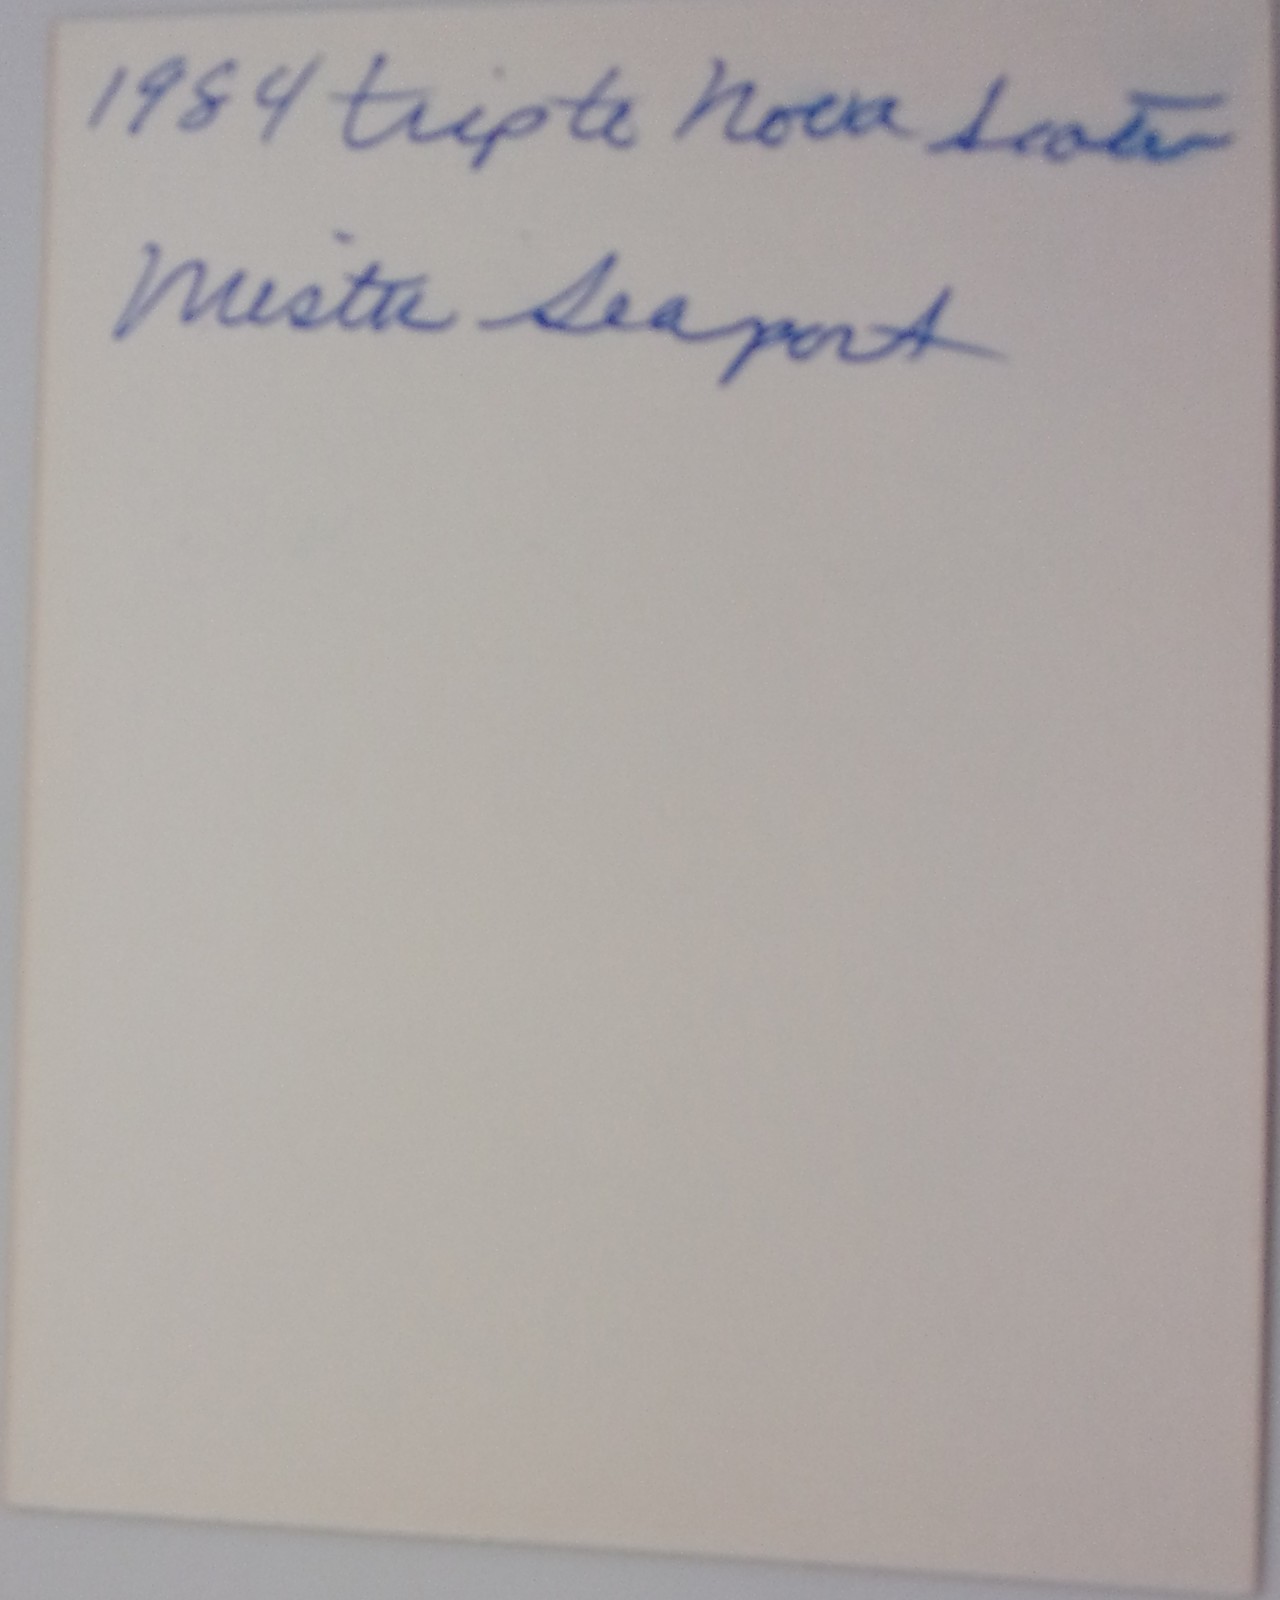 1984 trip to Nova Scotia
Mistic Seaport